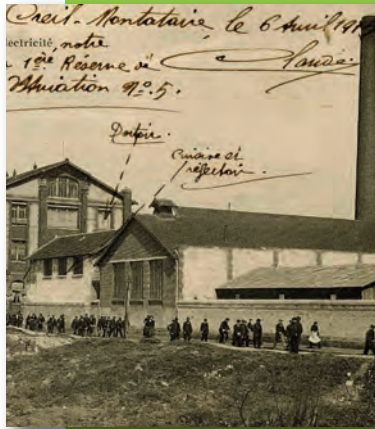 Creil-Montataire le 6 Avril
lectricité, notre
1ère Réserve
Claude.
Aviation Nº. 5.
Dortoir.
Cuisine et
réfectoire.